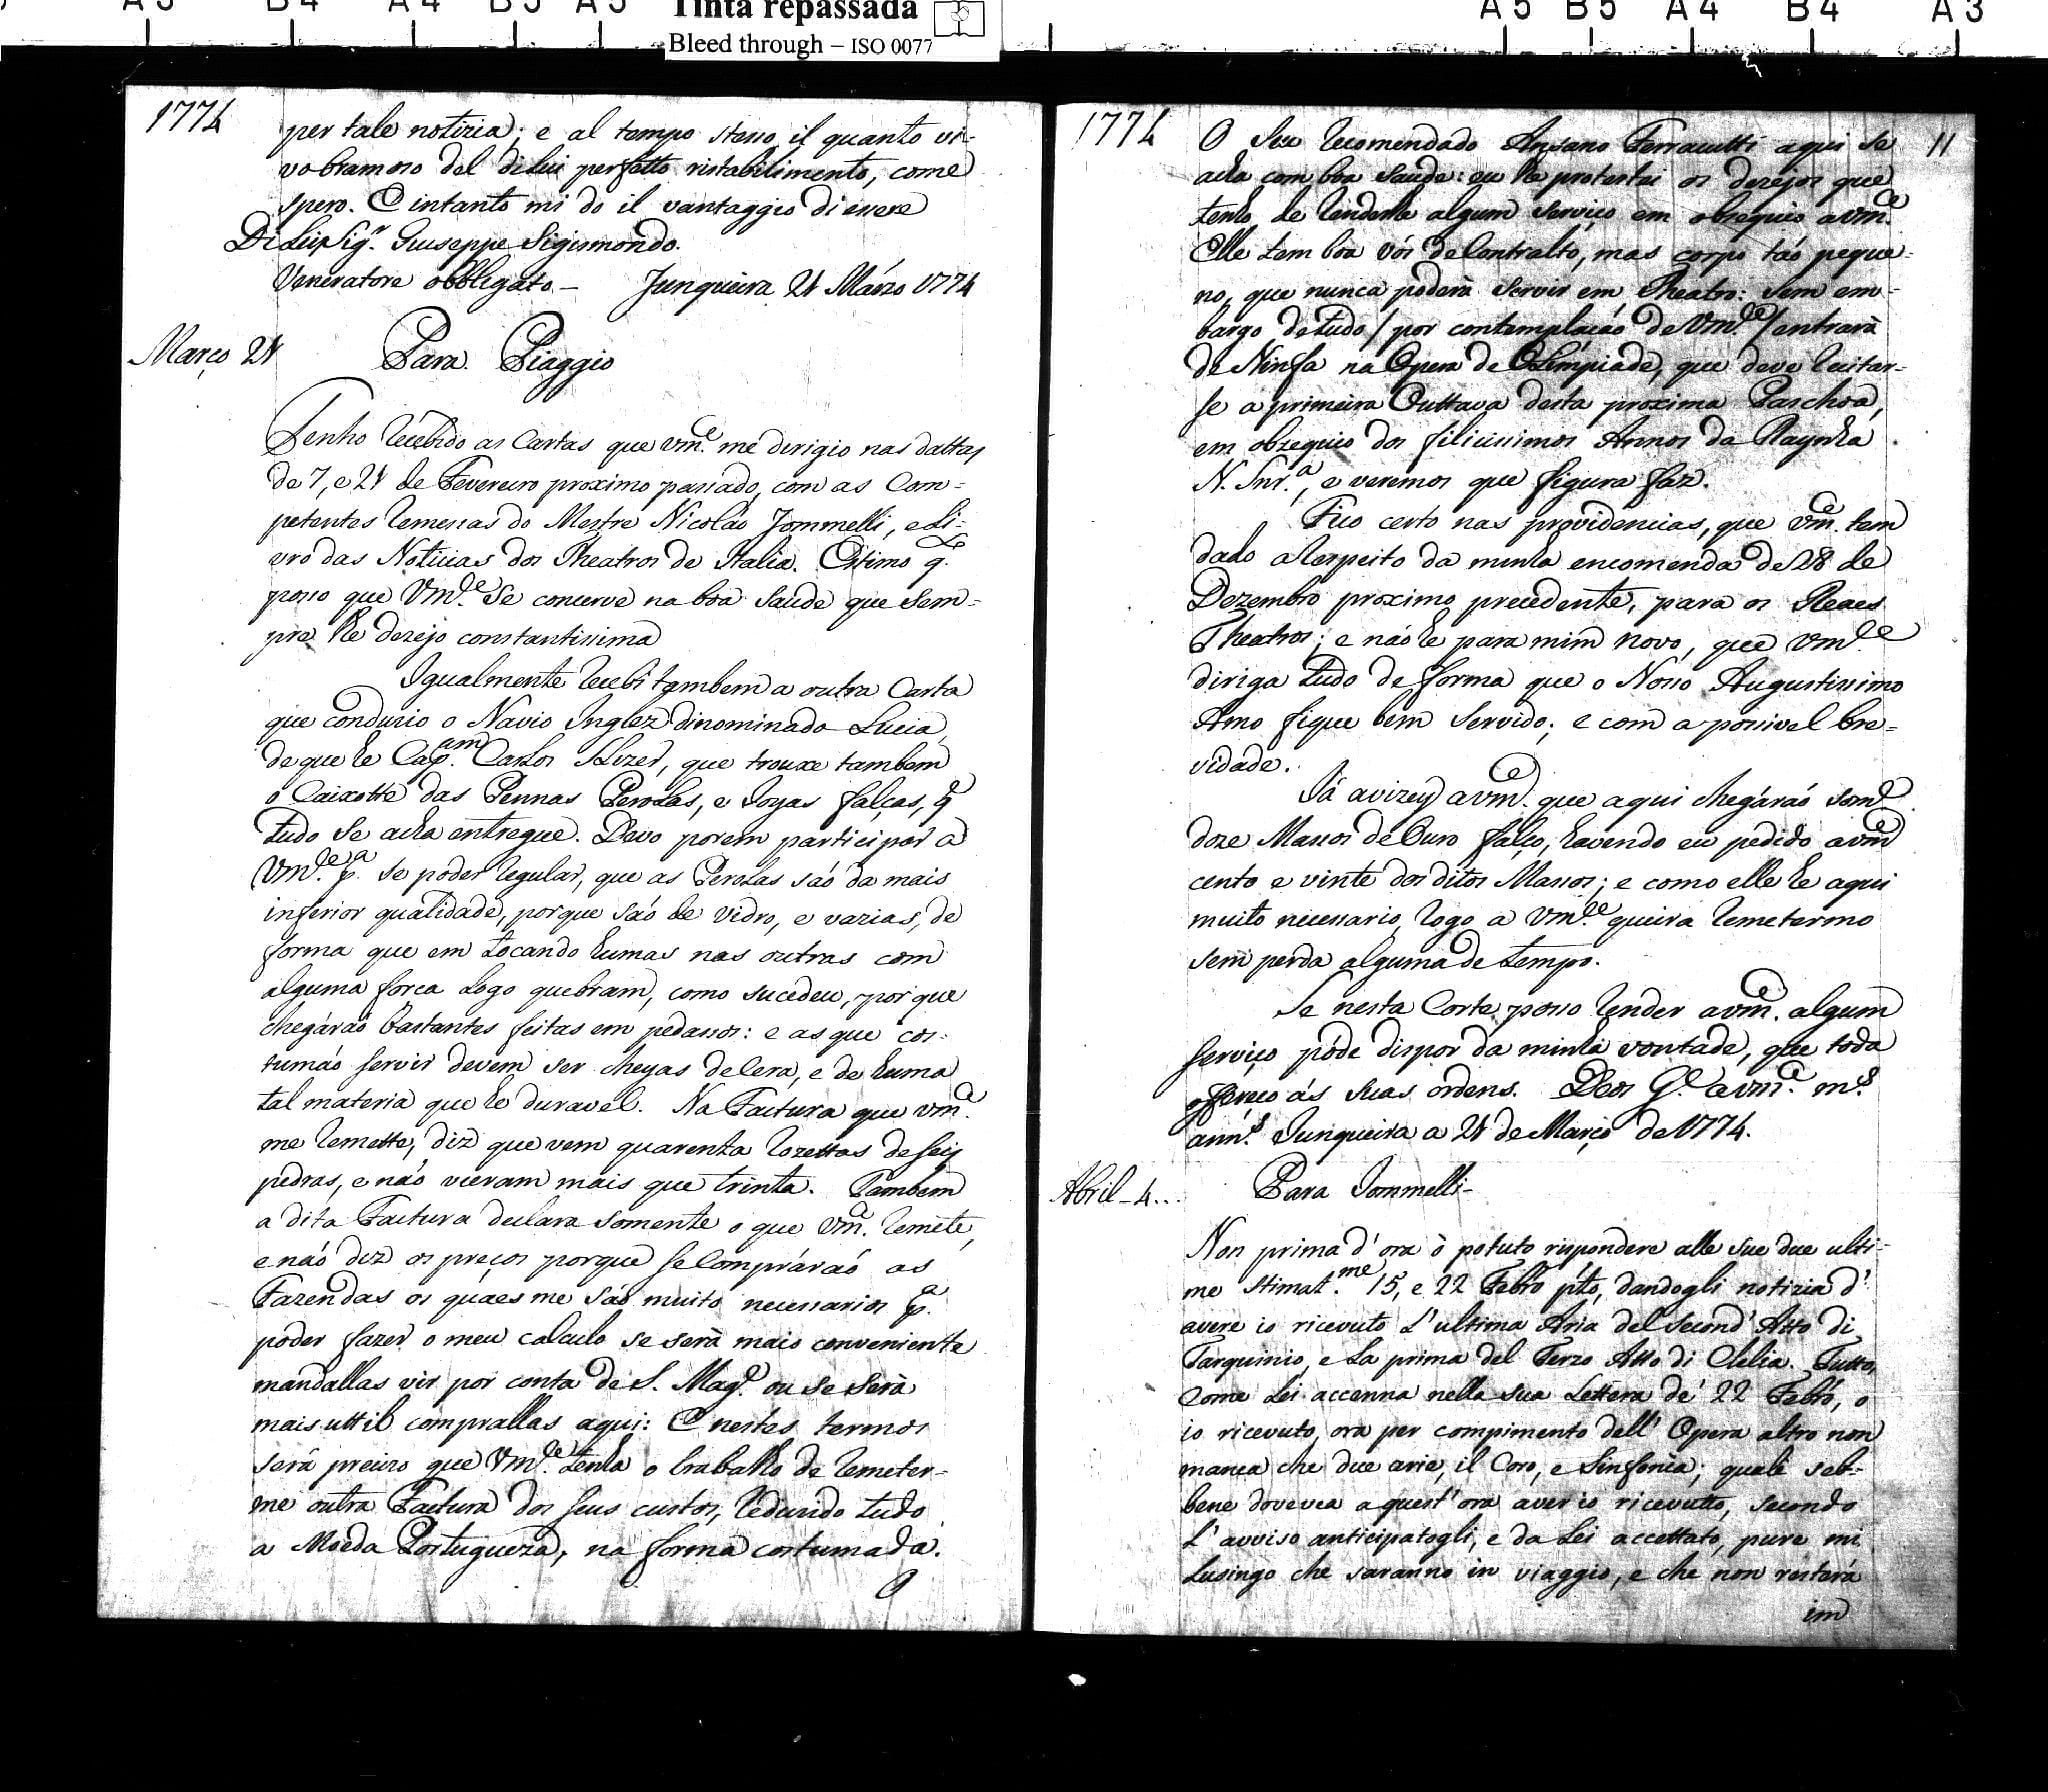 A3 B4 A4 B5 A5 Tinta repassada A5 B5 A4 B4 A3
Bleed through – ISO 0077
1774
per tale notizia; e al tempo stesso il quanto vi-
vo bramoso del di lui perfetto ristabilimento, come
spero. E intanto mi do il vantaggio di essere
Di Lei Sig.r Giuseppe Sigismondo.
Veneratore obbligato – Junqueira 21 Márzo 1774
Março 21 Para Piaggio
Tenho recebido as Cartas que Vm.ce me dirigio nas dattas
de 7, e 21 de Fevereiro proximo passado, com as Com-
petentes remessas do Mestre Nicoláo Jommelli, e Li-
vro das Noticias dos Theatros de Italia. Estimo q.
posso que Vm.ce se conserve na boa saude que sem-
pre lhe dezejo constantissima
Igualmente recebi tambem a outra Carta
que condusio o Navio Inglez dinominado Lucia,
de que he Cap.am Carlos, que trouxe tambem
o Caixotte das Pennas Perolas, e Joyas falças, q
tudo se acha entregue. Devo porem participar a
Vm.ce p.a se poder regular, que as Perolas sáo da mais
inferior qualidade, porque sáo de vidro, e vazias, de
forma que em tocando humas nas outras com
alguma forca logo quebram, como sucedeu, por que
chegáraó bastantes feitas em pedassos: e as que cos-
tumáo servir devem ser cheyas de Cera, e de huma
tal materia que he duravel. Na Factura que Vm.ce
me remette, diz que vem quarenta rozettas de seis
pedras, e náo vieram mais que trinta. Tambem
a dita Factura declara somente o que Vm.ce remete,
e náo diz os preços porque se Compráraó as
Fazendas os quaes me sáo muito necessarios p.a
poder fazer o meu calculo se será mais conveniente
mandallas vir por conta de S. Mag.e ou se será
mais uttil comprallas aqui: E nestes termos
será precizo que Vm.ce tenha o trabalho de remeter-
me outra Factura dos seus custos, redusido tudo
a Moeda Portugueza, na forma costumada.
O
1774 11
O seu recomendado Ansano Ferracutti aqui se
acha com boa saude: eu lhe protestei os dezejos que
tenho de renderlhe algum serviço em obsequio a Vm.ce
Elle tem boa vós de Contralto, mas corpo táo peque-
no, que nunca poderà servir em Theatro: sem em-
bargo de tudo / por contemplaçáo de Vm.ce / entrarà
de Ninfa na Opera de Olimpiade, que deve recitar-
se a primeira Outtava desta proxima Paschoa,
em obzequio dos filicissimos Annos da Raynha
N. Snr.a, e veremos que figura faz.
Fico certo nas providencias, que Vm.ce tem
dado a respeito da minha encomenda de 28 de
Dezembro proximo precedente, para os Reaes
Theatros; e náo he para mim novo, que Vm.ce
diriga tudo de forma que o Nosso Augustissimo
Amo fique bem servido; e com a possivel bre-
vidade.
Já avizey a Vm.ce que aqui chegáraó som.e
doze Massos de Ouro falço, havendo eu pedido a Vm.ce
cento e vinte dos ditos Massos; e como elle he aqui
muito necessario, rogo a Vm.ce queira remetermo
sem perda alguma de tempo.
Se nesta Corte posso render a Vm.ce algum
serviço póde dispor da minha vontade, que toda
offereço ás suas ordens. Deos G.e a Vm.ce m.s
ann.s Junqueira a 21 de Março de 1774.
Abril – 4... Para Jommelli –
Non prima d'ora ò potuto rispondere alle sue due ulti-
me stimat.me 15, e 22 Febro pto, dandogli notizia d'
avere io ricevuto L'ultima Aria del Second' Atto di
Tarquinio, e La prima del Terzo Atto di Clelia. Tutto,
come Lei accenna nella sua Lettera de' 22 Febro, o
io ricevuto, ora per compimento dell' Opera altro non
manca che due arie, il Coro, e Sinfonia; quale seb-
bene doveva a quest' ora aver io ricevutto, secondo
L'avviso anticipatogli, e da Lei accettato, pure mi
Lusingo che saranno in viaggio, e che non resterá
im